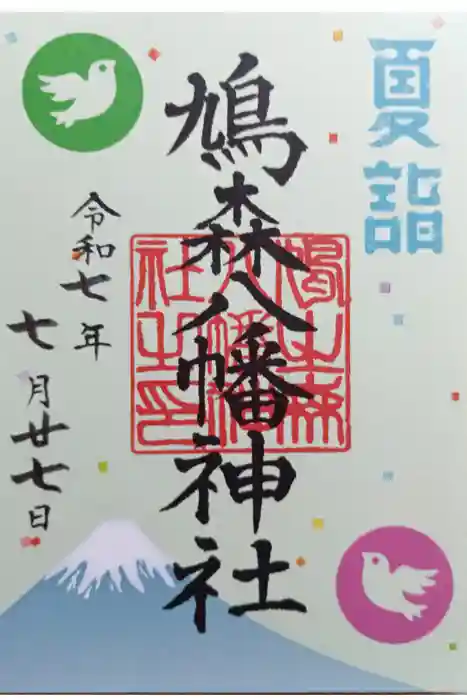 夏詣
鳩森八幡神社
令和七年
七月廿七日
鳩之森
八幡神
社之印